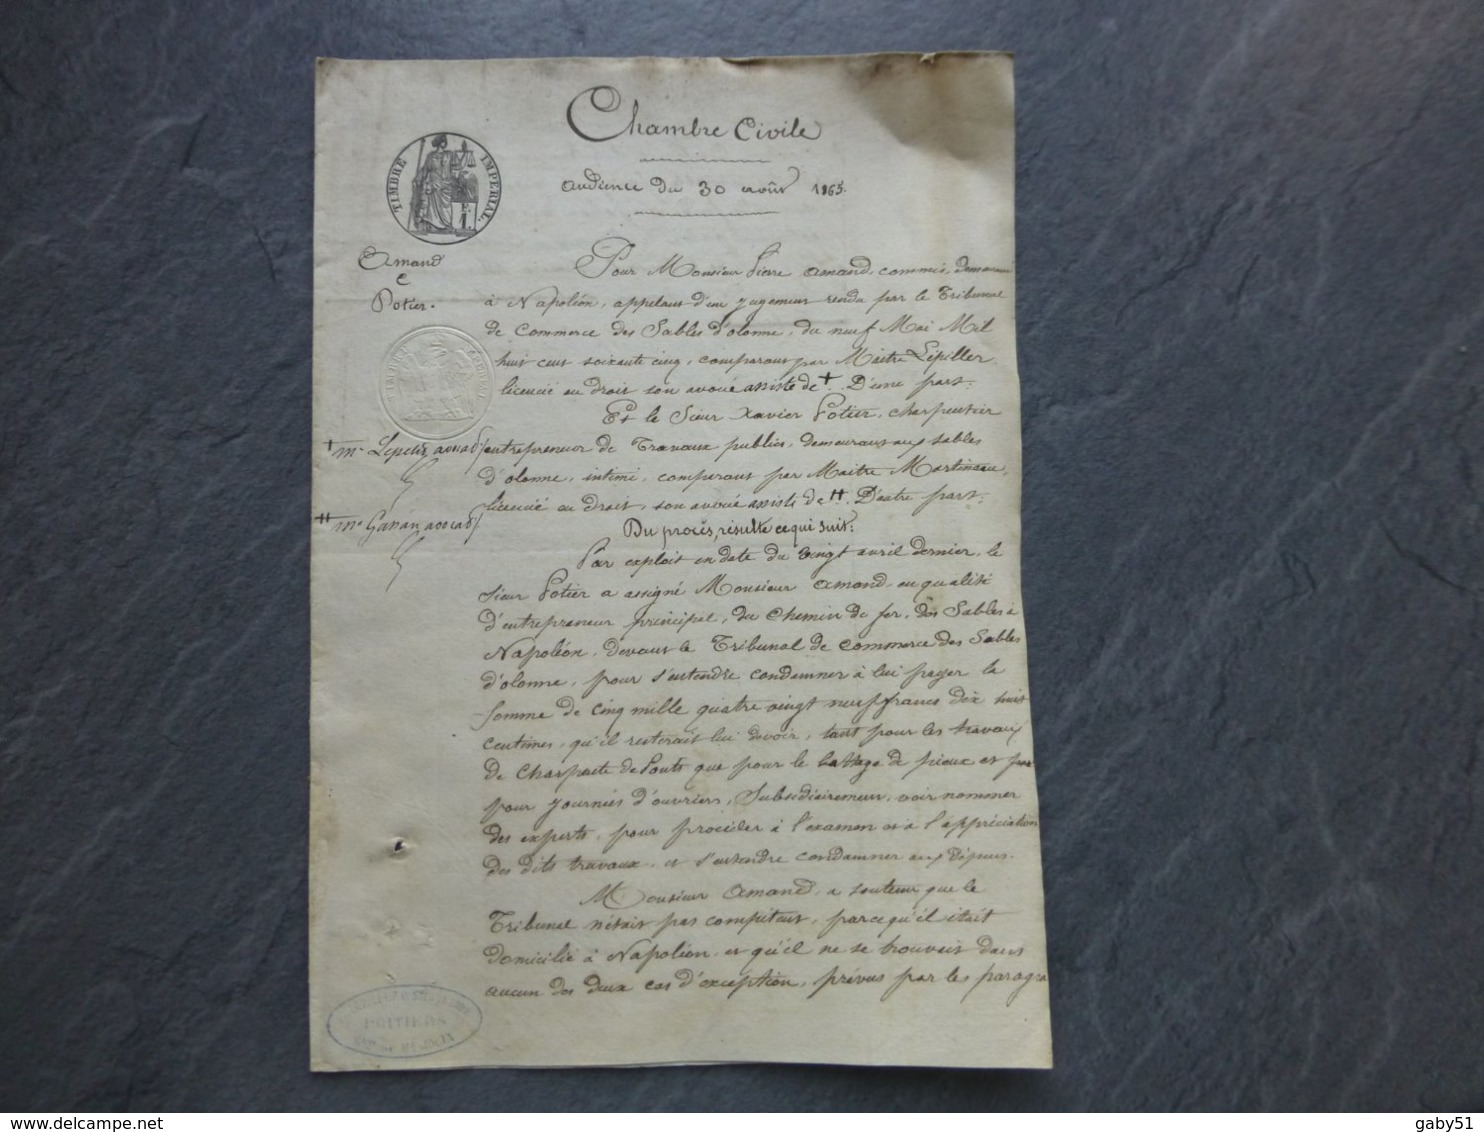 Chambre Civile
TIMBRE IMPERIAL.
1.
audience du 30 août 1865.
Amand
C
Potier.
Pour Monsieur Piere Amand, commis, demeurant
à Napoléon, appelant d'un jugement rendu par le Tribunal
de Commerce des Sables d'olonne, du neuf Mai Mil
huit cent soixante cinq, comparant par Maitre Lépiller
licencié en droit son avoué assisté de + D'une part.
Et le Sieur Xavier Potier, charpentier
+ me Lepetit avocat
entrepreneur de Travaux publics, demeurant aux sables
d'olonne, intimé, comparant par Maitre Martineau,
licencié en droit, son avoué assisté de ++. D'autre part.
++ me avocat
Du procès, résulte ce qui suit:
Par exploit en date du vingt avril dernier, le
sieur Potier a assigné Monsieur Amand, en qualité
d'entrepreneur principal, du chemin de fer, des Sables à
Napoléon, devant le Tribunal de commerce des Sables
d'olonne, pour s'entendre condamner à lui payer la
somme de cinq mille quatre vingt neuf francs dix huit
centimes, qu'il resterait lui devoir, tant pour les travaux
de charpente de Ponts que pour le battage de pieux et
pour journées d'ouvriers, Subsidiairement, voir nommer
des experts, pour procéder à l'examen et à l'appréciation
des dits travaux, et s'entendre condamner aux dépens.
Monsieur Amand, a soutenu que le
Tribunal n'était pas compétent, parce qu'il était
domicilié à Napoléon, et qu'il ne se trouvait dans
aucun des deux cas d'exception, prévus par les paragra
POITIERS
gaby51